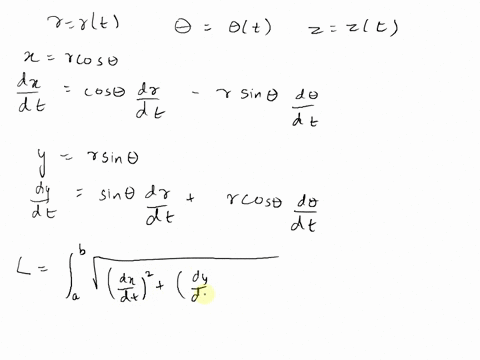 r = r(t) θ = θ(t) z = z(t)
x = r cosθ
dx/dt = cosθ dr/dt - r sinθ dθ/dt
y = r sinθ
dy/dt = sinθ dr/dt + r cosθ dθ/dt
L = ∫_a^b √((dx/dt)² + (dy/d